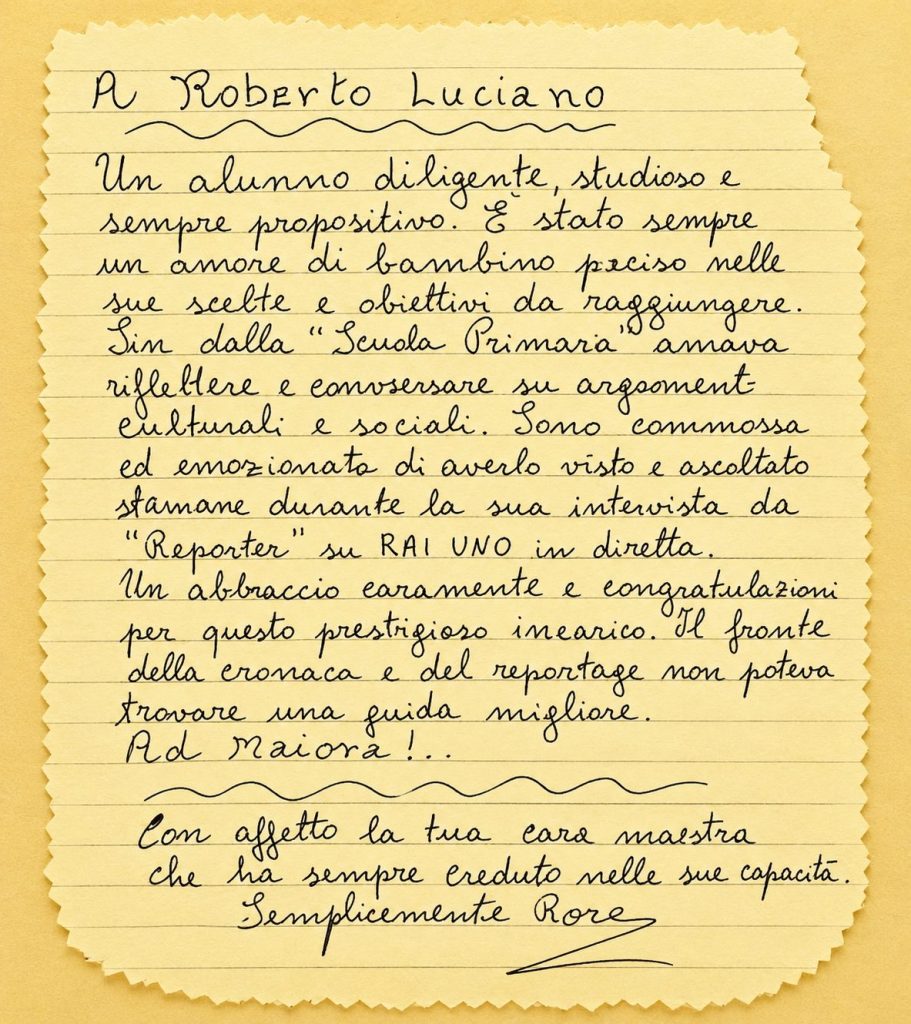 A Roberto Luciano
Un alunno diligente, studioso e
sempre propositivo. È stato sempre
un amore di bambino preciso nelle
sue scelte e obiettivi da raggiungere.
Sin dalla "Scuola Primaria" amava
riflettere e conversare su argoment-
culturali e sociali. Sono commossa
ed emozionata di averlo visto e ascoltato
stamane durante la sua intervista da
"Reporter" su RAI UNO in diretta.
Un abbraccio caramente e congratulazioni
per questo prestigioso incarico. Il fronte
della cronaca e del reportage non poteva
trovare una guida migliore.
Ad Maiora!..
Con affetto la tua cara maestra
che ha sempre creduto nelle sue capacità.
Semplicemente